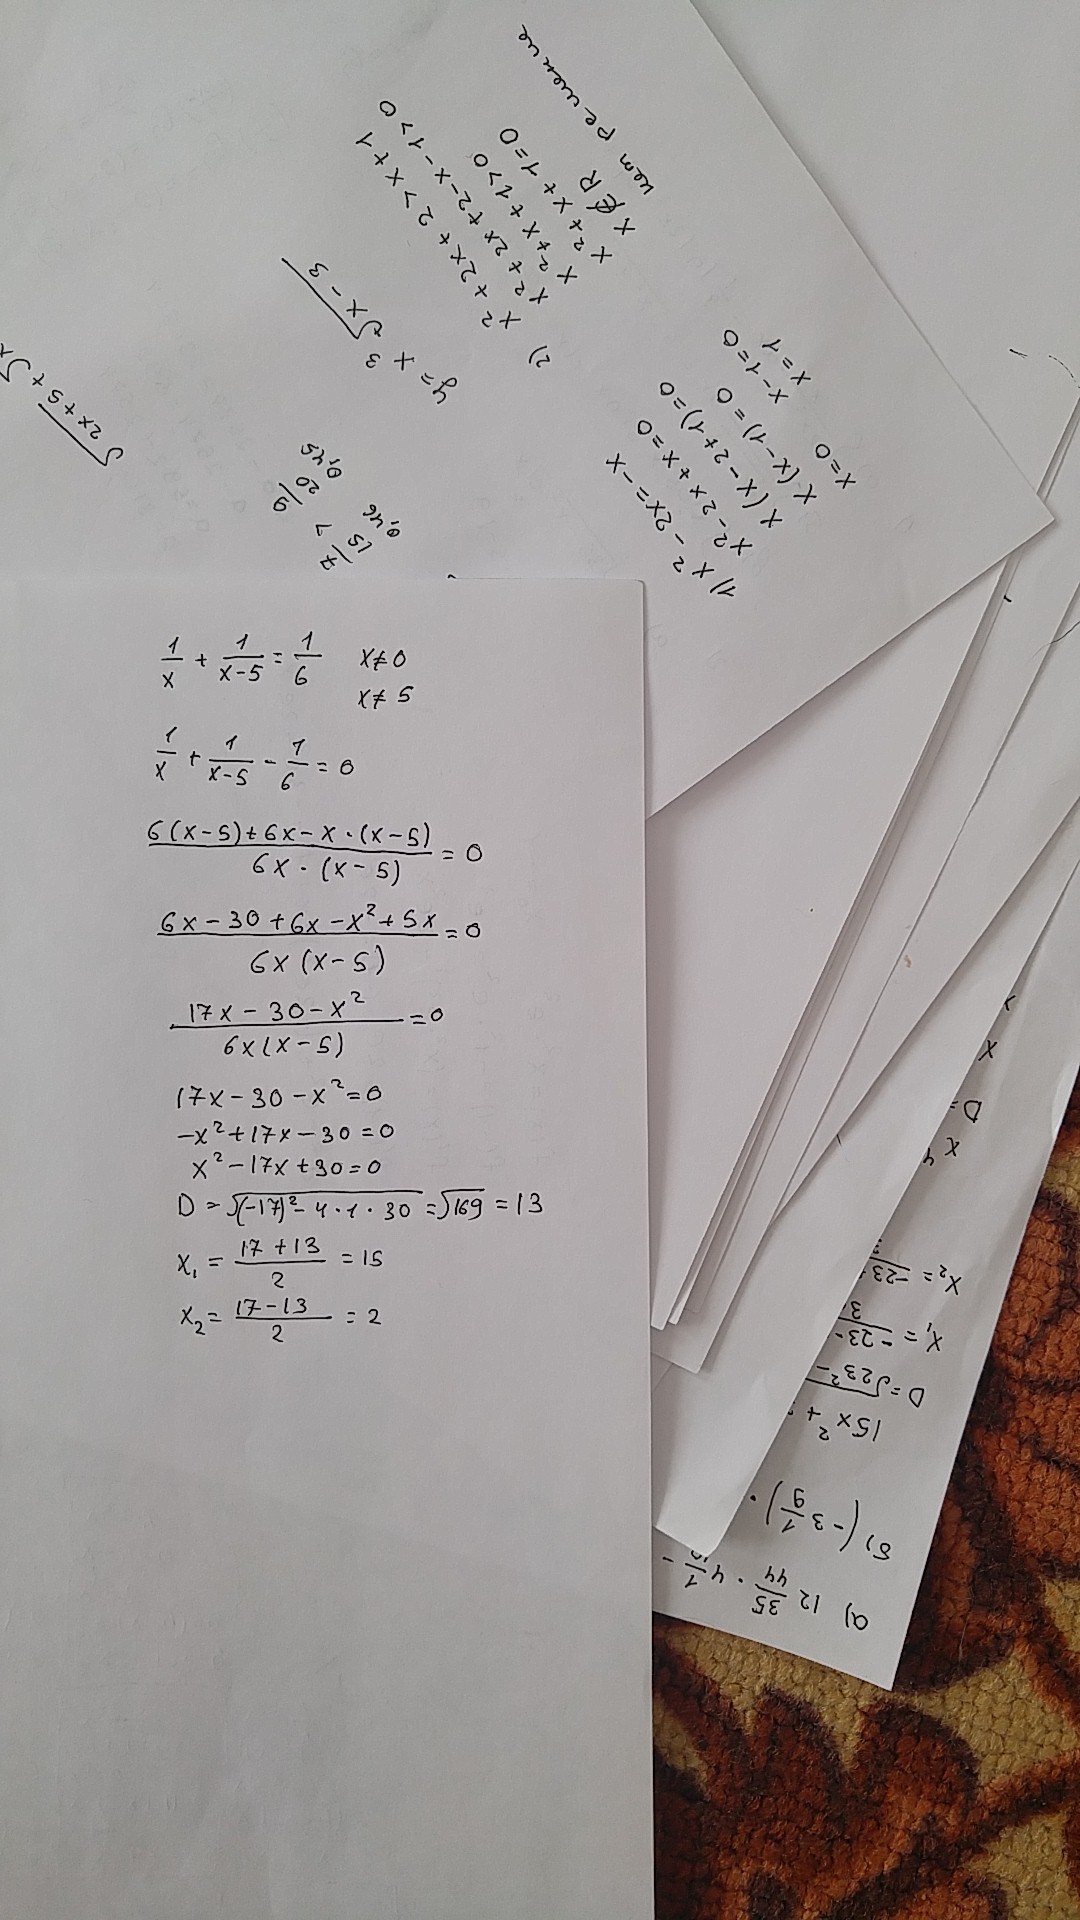 1/x + 1/(x-5) = 1/6   x≠0
x≠5
1/x + 1/(x-5) - 1/6 = 0
(6(x-5)+6x-x·(x-5))/(6x·(x-5)) = 0
(6x-30+6x-x²+5x)/(6x(x-5)) = 0
(17x-30-x²)/(6x(x-5)) = 0
17x-30-x²=0
-x²+17x-30=0
x²-17x+30=0
D=√((-17)²-4·1·30)=√169=13
x₁=(17+13)/2=15
x₂=(17-13)/2=2
1) x²-2x=-x
x²-2x+x=0
x(x-2+1)=0
x(x-1)=0
x=0   x-1=0
x=1
2) x²+2x+2>x+1
x²+2x+2-x-1>0
x²+x+1>0
x²+x+1=0
x∉R
нет решение
y=x³√(x-3)
√(2x+5)+√x
7/15 > 9/20
0,46   0,45
а) 12 35/44 · 4
б) (-3 1/9) ·
15x²+
D=√(23²-
x₁=-23-
x₂=-23
x
D=
x